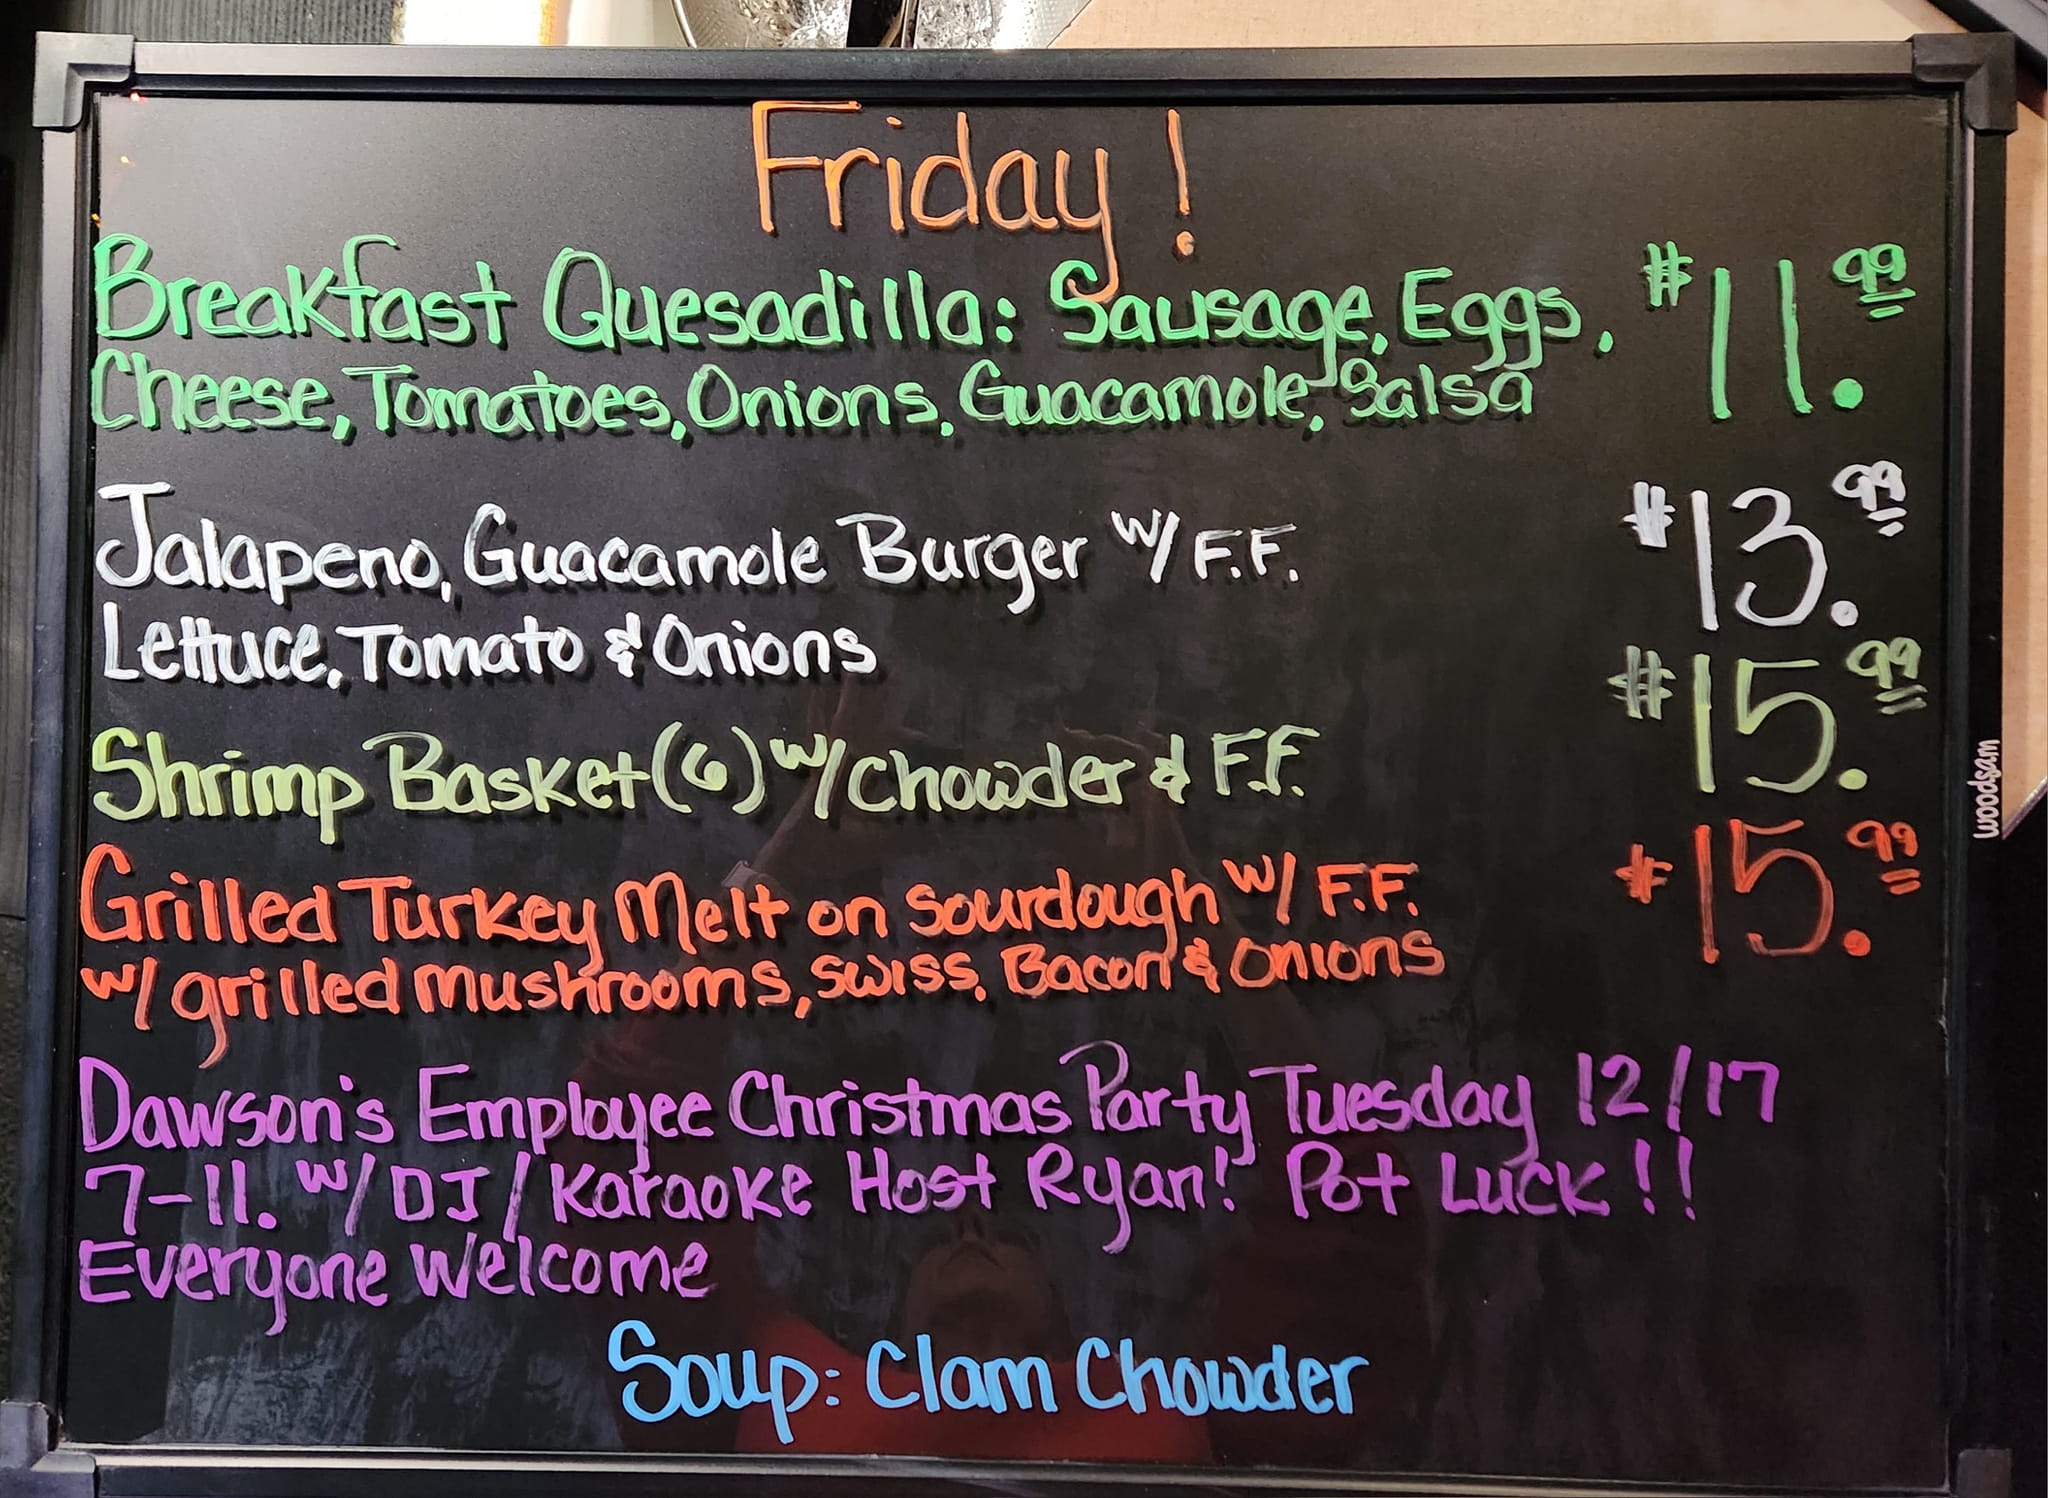 Friday!
Breakfast Quesadilla: Sausage, Eggs, $11.99
Cheese, Tomatoes, Onions, Guacamole, Salsa
Jalapeno, Guacamole Burger w/ F.F. $13.99
Lettuce, Tomato & Onions
Shrimp Basket (6) w/ Chowder & F.F. $15.99
Grilled Turkey Melt on Sourdough w/ F.F. $15.99
w/ grilled mushrooms, swiss, Bacon & Onions
Dawson's Employee Christmas Party Tuesday 12/17
7-11. w/ DJ/Karaoke Host Ryan! Pot Luck!!
Everyone Welcome
Soup: Clam Chowder
woodsam